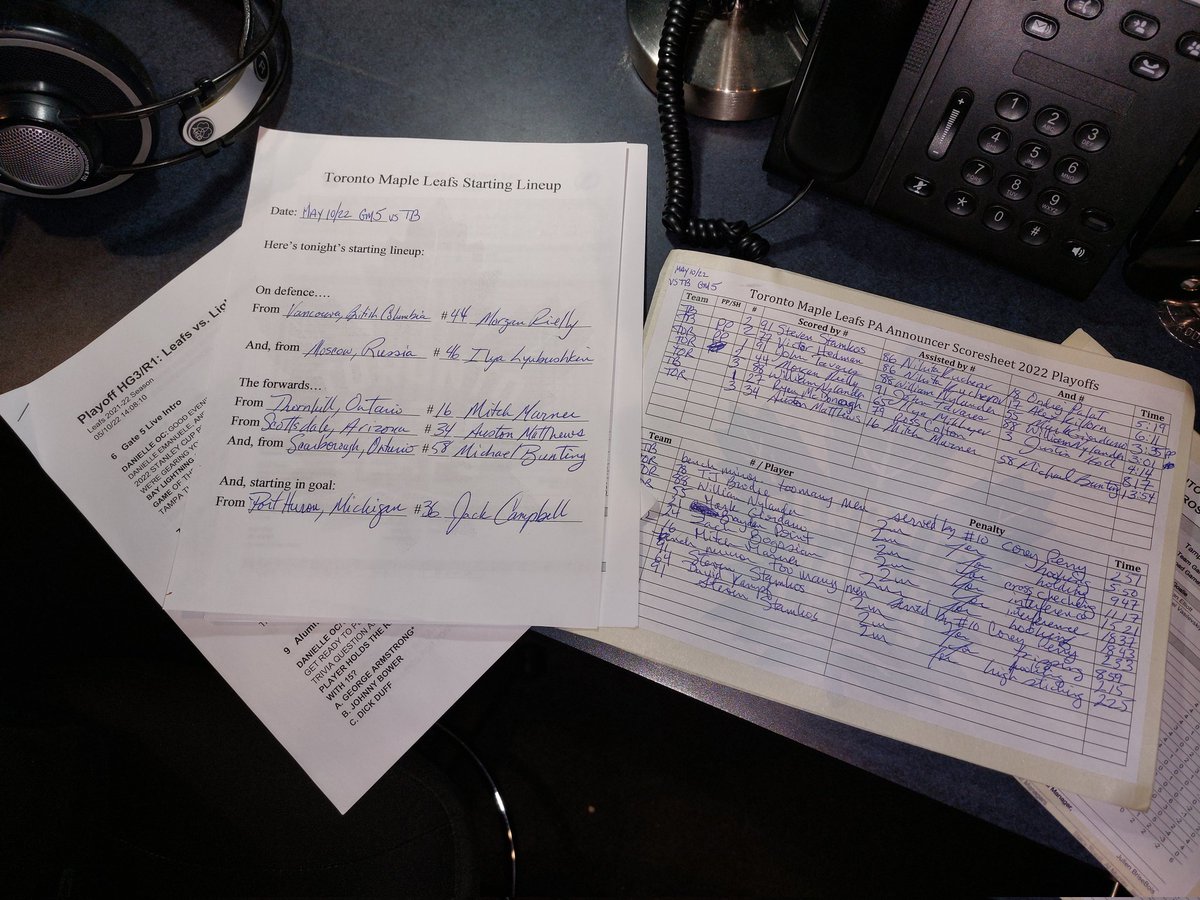 Toronto Maple Leafs Starting Lineup
Date: MAY 10/22 GM5 vs TB
Here's tonight's starting lineup:
On defence....
From Vancouver, British Columbia #44 Morgan Rielly
And, from Moscow, Russia #46 Ilya Lyubushkin
The forwards...
From Thornhill, Ontario #16 Mitch Marner
From Scottsdale, Arizona #34 Auston Matthews
And, from Scarborough, Ontario #58 Michael Bunting
And, starting in goal:
From Port Huron, Michigan #36 Jack Campbell
Playoff HG3/R1: Leafs vs. Lig
Leafs 2021-22 Season
05/10/22 14:08:10
6 Gate 5 Live Intro
DANIELLE OC: GOOD EVEN
DANIELLE EMANUELE, AN
2022 STANLEY CUP P
WE'RE GEARING YO
BAY LIGHTNING
GAME OF TH
TAMPA T
9 Alumni
DANIELLE OC:
GET READY TO P
TRIVIA QUESTION A
PLAYER HOLDS THE R
WITH 15?
A. GEORGE ARMSTRONG*
B. JOHNNY BOWER
C. DICK DUFF
MAY 10/22
VS TB GM5
Toronto Maple Leafs PA Announcer Scoresheet 2022 Playoffs
Team PP/SH # Scored by # Assisted by # And # Time
TB 91 Steven Stamkos 86 Nikita Kucherov 18 Ondrej Palat 5:19
TB 2 77 Victor Hedman 86 Nikita Kucherov 6:11
TOR PP 1 91 John Tavares 88 William Nylander 3:35 PP
TOR 2 44 Morgan Rielly 91 John Tavares 88 William Nylander 3:01
TOR 3 88 William Nylander 65 Ilya Mikheyev 3 Justin Holl 4:14
TB 3 27 Ryan McDonagh 79 Ross Colton 8:17
TOR 34 Auston Matthews 16 Mitch Marner 58 Michael Bunting 13:54
Team # / Player Penalty Time
TB bench minor too many men served by #10 Corey Perry 237
78 TJ Brodie 2m for holding 550
88 William Nylander 2m for 947
55 Mark Giordano 2m for cross checking 1117
21 Brayden Point 2m for interference 1521
Zach Bogosian 2m for interference 1837
16 Mitch Marner 2m for hooking 1843
bench minor too many men served by #10 Corey Perry 233
Steven Stamkos 2m for tripping 859
64 David Kampf 2m for 215
91 Steven Stamkos 2m for high sticking 225
Manager,
Julien BriseBois
1
2 ABC
3 DEF
4 GHI
5 JKL
6 MNO
7 PQRS
8 TUV
9 WXYZ
*
0
#